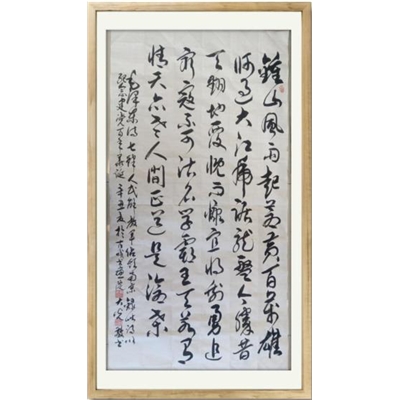 鍾山風雨起蒼黃百萬雄
师過大江虎踞龍盤今勝昔
天翻地覆慨而慷宜將剩勇追
窮寇不可沽名學霸王天若有
情天亦老人間正道是滄桑
毛澤東詩七律人民解放軍佔領南京錄此詩以
建党百年華誕辛丑夏於